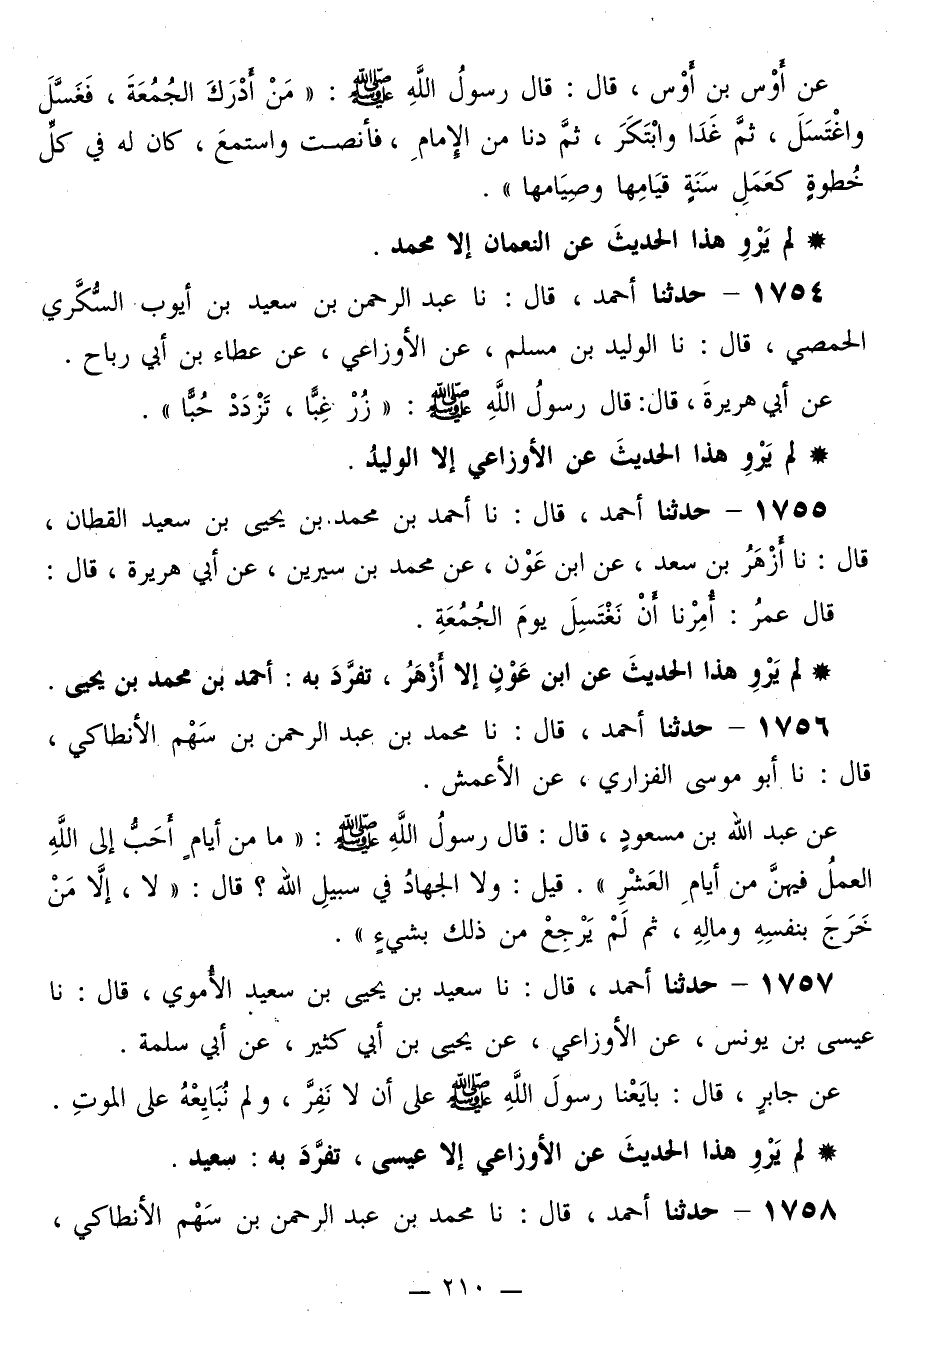 عن أَوْس بن أَوْس ، قال : قال رسولُ اللَّهِ ﷺ : « مَنْ أَدْرَكَ الجُمُعَةَ ، فَغَسَّلَ
واغْتَسَلَ ، ثمَّ غَدَا وابْتَكَرَ ، ثمَّ دنا من الإمامِ ، فأنصت واستمعَ ، كان له في كلِّ
خُطوةٍ كعَمَلِ سَنَةٍ قيَامِها وصِيَامها » .
* لم يَرْوِ هذا الحديثَ عن النعمان إلا محمد .
١٧٥٤ – حدثنا أحمد ، قال : نا عبد الرحمن بن سعيد بن أيوب السُّكَّري
الحمصي ، قال : نا الوليد بن مسلم ، عن الأوزاعي ، عن عطاء بن أبي رباح .
عن أبي هريرةَ ، قال: قال رسولُ اللَّهِ ﷺ : « زُرْ غِبًّا ، تَزْدَدْ حُبًّا » .
* لم يَرْوِ هذا الحديثَ عن الأوزاعي إلا الوليدُ .
١٧٥٥ – حدثنا أحمد ، قال : نا أحمد بن محمد بن يحيى بن سعيد القطان ،
قال : نا أَزْهَرُ بن سعد ، عن ابن عَوْن ، عن محمد بن سيرين ، عن أبي هريرة ، قال :
قال عمرُ : أُمِرْنا أَنْ نَغْتَسِلَ يومَ الجُمُعَةِ .
* لم يَرْوِ هذا الحديثَ عن ابن عَوْنٍ إلا أَزْهَرُ ، تفرَّدَ به : أحمد بن محمد بن يحيى .
١٧٥٦ – حدثنا أحمد ، قال : نا محمد بن عبد الرحمن بن سَهْم الأنطاكي ،
قال : نا أبو موسى الفزاري ، عن الأعمش .
عن عبد الله بن مسعودٍ ، قال : قال رسولُ اللَّهِ ﷺ : « ما من أيامٍ أَحَبُّ إلى اللَّهِ
العملُ فيهنَّ من أيامِ العَشْرِ » . قيل : ولا الجهادُ في سبيلِ الله ؟ قال : « لا ، إلَّا مَنْ
خَرَجَ بنفسِهِ ومالِهِ ، ثم لَمْ يَرْجِعْ من ذلك بشيءٍ » .
١٧٥٧ – حدثنا أحمد ، قال : نا سعيد بن يحيى بن سعيد الأُموي ، قال : نا
عيسى بن يونس ، عن الأوزاعي ، عن يحيى بن أبي كثير ، عن أبي سلمة .
عن جابرٍ ، قال : بايَعْنا رسولَ اللَّهِ ﷺ على أن لا نَفِرَّ ، ولم نُبَايِعْهُ على الموتِ .
* لم يَرْوِ هذا الحديثَ عن الأوزاعي إلا عيسى ، تفرَّدَ به : سعيد .
١٧٥٨ – حدثنا أحمد ، قال : نا محمد بن عبد الرحمن بن سَهْم الأنطاكي ،
— ٢١٠ —